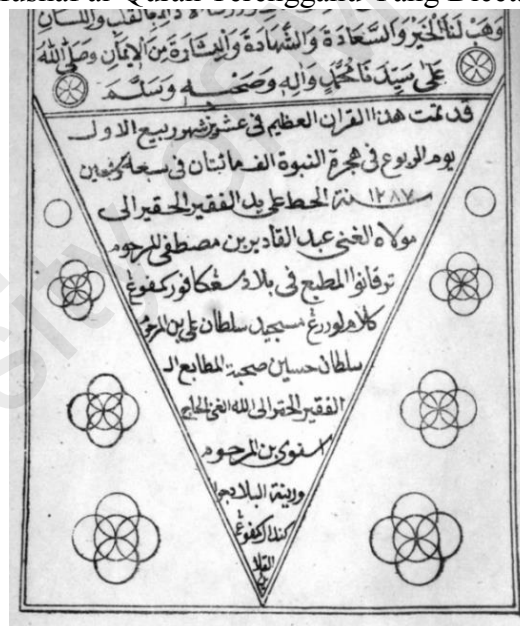 Mushaf al-Quran Terengganu Yang Dicetak
وَهَبْ لَنَا الْخَيْرَ وَالسَّعَادَةَ وَالشَّهَادَةَ وَالْبِشَارَةَ مِنَ الْإِيمَانِ وَصَلَّى اللهُ
عَلَى سَيِّدِنَا مُحَمَّدٍ وَآلِهِ وَصَحْبِهِ وَسَلَّمَ
قد تمت هذا القران العظيم فى عشين شهور ربيع الاول
يوم الربوع فى هجرة النبوة الف مائتان فى سبعه
١٢٨٧ سنة الحط على يد الفقير الحقير الى
مولاه الغنى عبد القادير بن مصطفى المرحوم
ترقانوا المطبع فى بلاد سڠكافور كمفوڠ
كلام لورڠ مسجيد سلطان على بن المرحوم
سلطان حسين صحبة المطابع الـ
الفقير الحقر الى الله الغنى الحاج
بن المرحوم
ورينة البلاد جوا
كمفوڠ